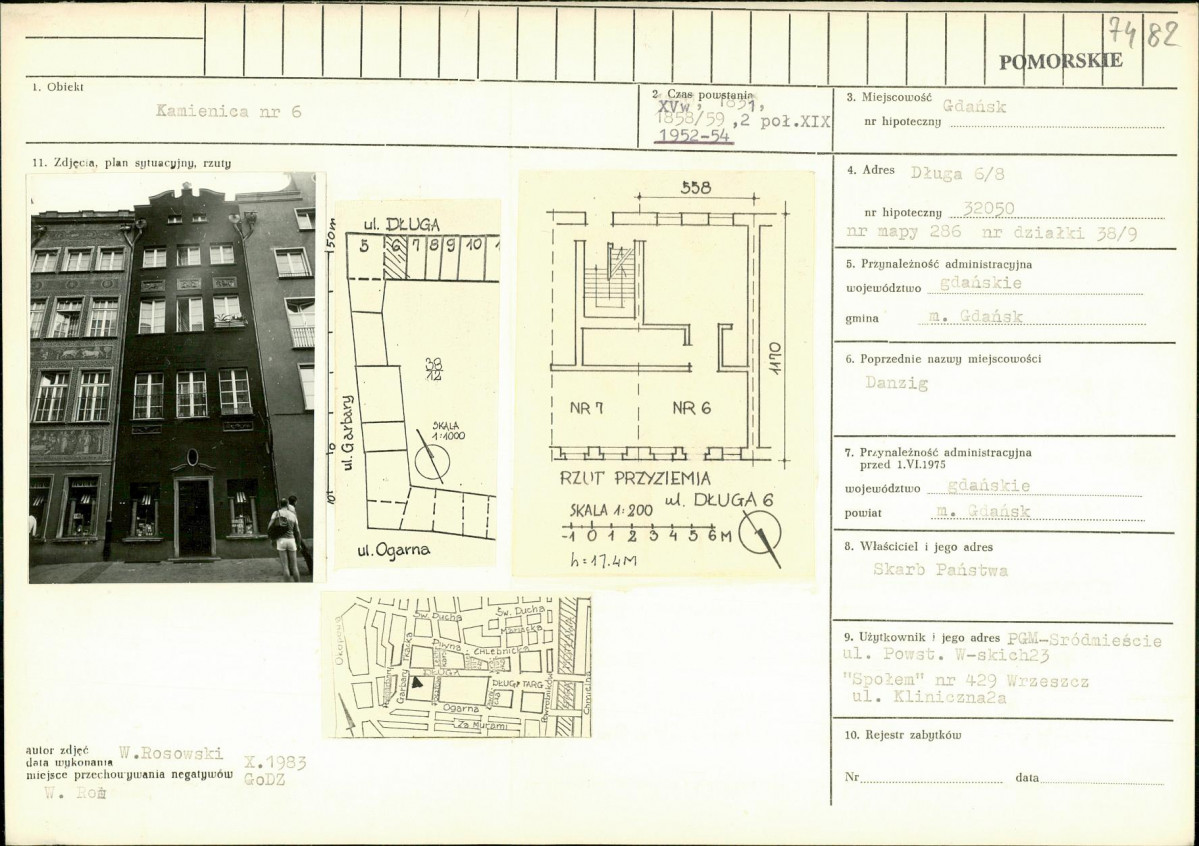 7482
POMORSKIE
1. Obiekt
Kamienica nr 6
2. Czas powstania
XVw, 1851,
1858/59, 2 poł.XIX
1952-54
3. Miejscowość Gdańsk
nr hipoteczny
11. Zdjęcia, plan sytuacyjny, rzuty
4. Adres Długa 6/8
nr hipoteczny 32050
nr mapy 286 nr działki 38/9
5. Przynależność administracyjna
województwo gdańskie
gmina m. Gdańsk
6. Poprzednie nazwy miejscowości
Danzig
7. Przynależność administracyjna
przed 1.VI.1975
województwo gdańskie
powiat m. Gdańsk
8. Właściciel i jego adres
Skarb Państwa
9. Użytkownik i jego adres PGM-Sródmieście
ul. Powst. W-skich23
"Społem" nr 429 Wrzeszcz
ul. Kliniczna2a
10. Rejestr zabytków
Nr data
ul. DŁUGA
5 6 7 8 9 10 1
50m
38
12
ul. Garbary
SKALA
1:1000
0
10
ul. Ogarna
558
1170
NR 7 NR 6
RZUT PRZYZIEMIA
ul. DŁUGA 6
SKALA 1:200
-1 0 1 2 3 4 5 6M
h=17.4M
Okopowa
Św. Ducha
Św. Ducha
Mariacka
Tkacka
CHLEBNICKA
DŁUGA
DŁUGI TARG
Garbary
Ogarna
Za Murami
autor zdjęć W.Rosowski
data wykonania X.1983
miejsce przechowywania negatywów GoDZ
W. Ros